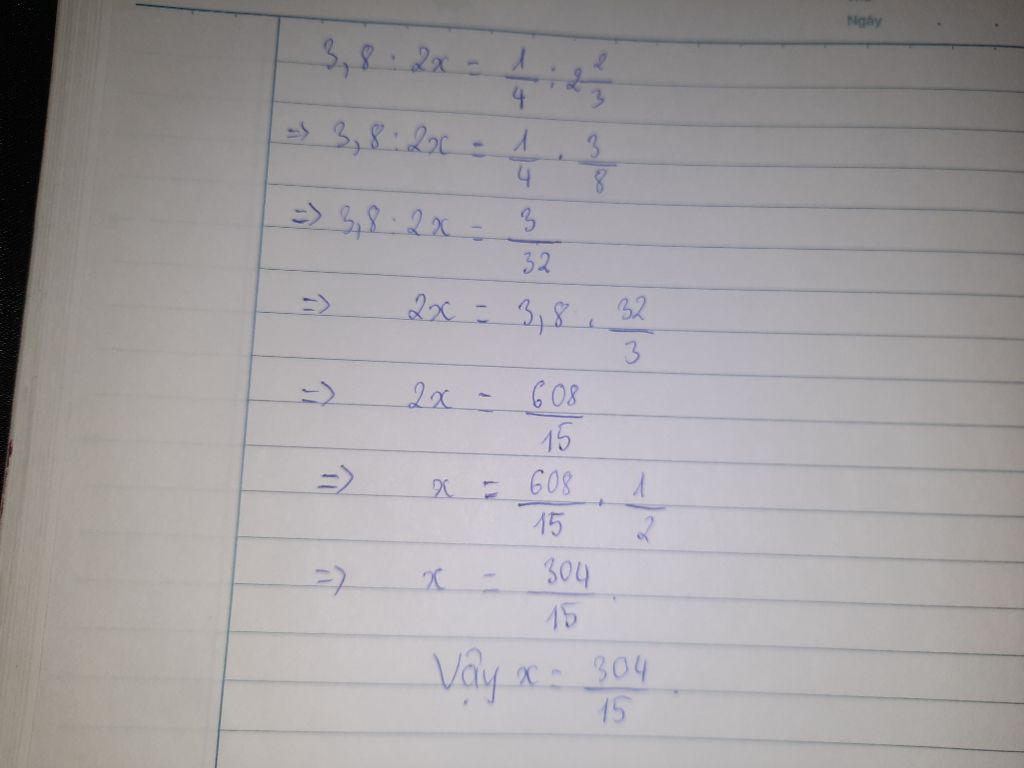 Ngày
3,8 : 2x = 1/4 : 2 2/3
=> 3,8 : 2x = 1/4 . 3/8
=> 3,8 : 2x = 3/32
=> 2x = 3,8 . 32/3
=> 2x = 608/15
=> x = 608/15 . 1/2
=> x = 304/15.
Vậy x = 304/15.